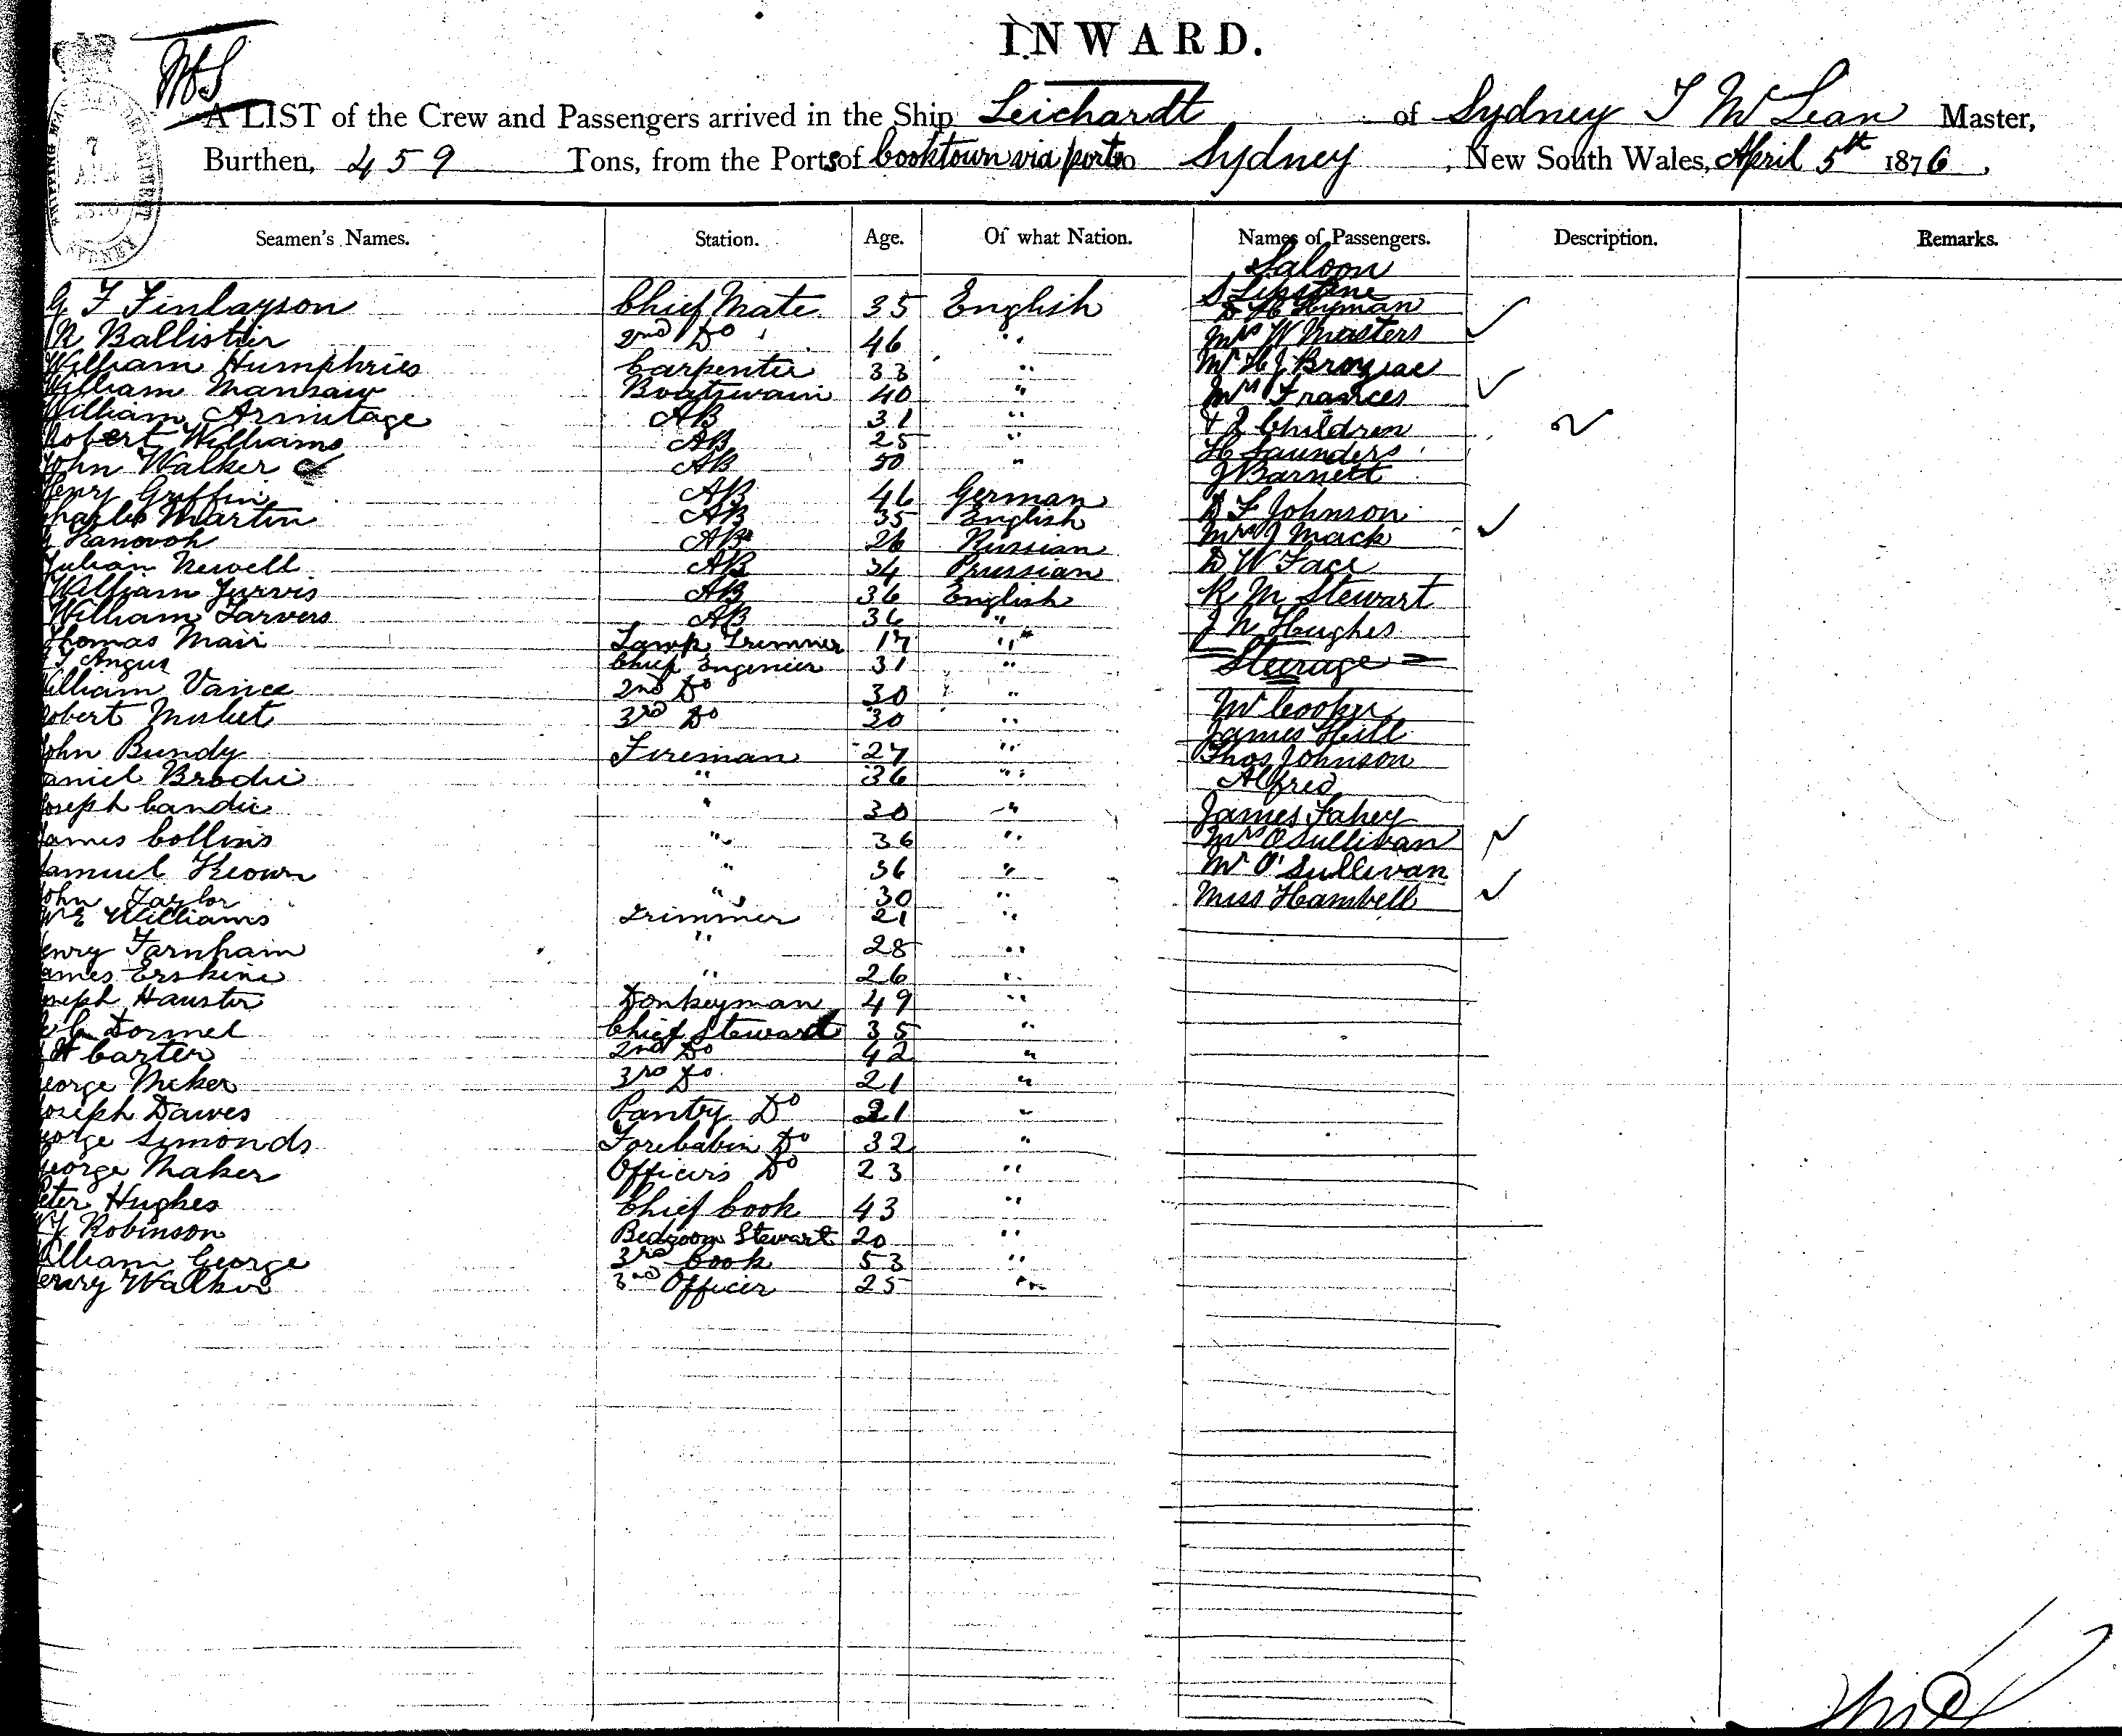 INWARD.
A LIST of the Crew and Passengers arrived in the Ship Leichardt of Sydney T McLean Master,
Burthen, 459 Tons, from the Ports of Cooktown via ports to Sydney, New South Wales, April 5th 1876.
Seamen's Names. Station. Age. Of what Nation. Names of Passengers. Description. Remarks.
Saloon
G F Finlayson Chief Mate 35 English
Hyman
R Ballistier 2nd Do 46 " Mrs W Masters
William Humphries Carpenter 33 " Mr H J
William Mansaw Boatswain 40 " Mrs Frances
William Armitage AB 31 " & 2 Children
Robert Williams AB 25 " H Saunders
John Walker AB 50 " J Barnett
Henry Griffin AB 46 German
Charles Martin AB 35 English D F Johnson
AB 26 Russian Mrs J Mack
Julian Newell AB 34 Prussian D W Face
William Jurvis AB 36 English R M Stewart
William Tarvers AB 36 " J N Hughes
Thomas Mair Lamp Trimmer 17 "
Angus Chief Engenier 31 " Steerage
William Vance 2nd Do 30 "
Robert Misket 3rd Do 30 " Mr Cooper
James Hill
John Bundy Fireman 27 " Thos Johnson
Daniel Brodie " 36 " Alfred
Joseph Candie " 30 " James Fahey
James Collins " 36 " Mrs O'Sullivan
Samuel Keown " 36 " Mr O'Sullivan
John Taylor " 30 " Miss Hambell
W E Williams Trimmer 21 "
Henry Farnham " 28 "
James Erskine " 26 "
Joseph Hauster Donkeyman 49 "
C Dormel Chief Stewart 35 "
H Carter 2nd Do 42 "
George Meker 3rd Do 21 "
Joseph Dawes Pantry Do 21 "
George Simonds ForeCabin Do 32 "
George Maker Officers Do 23 "
Peter Hughes Chief Cook 43 "
Robinson Bedroom Stewart 20 "
William George 3rd Cook 53 "
Henry Walker Officer 25 "